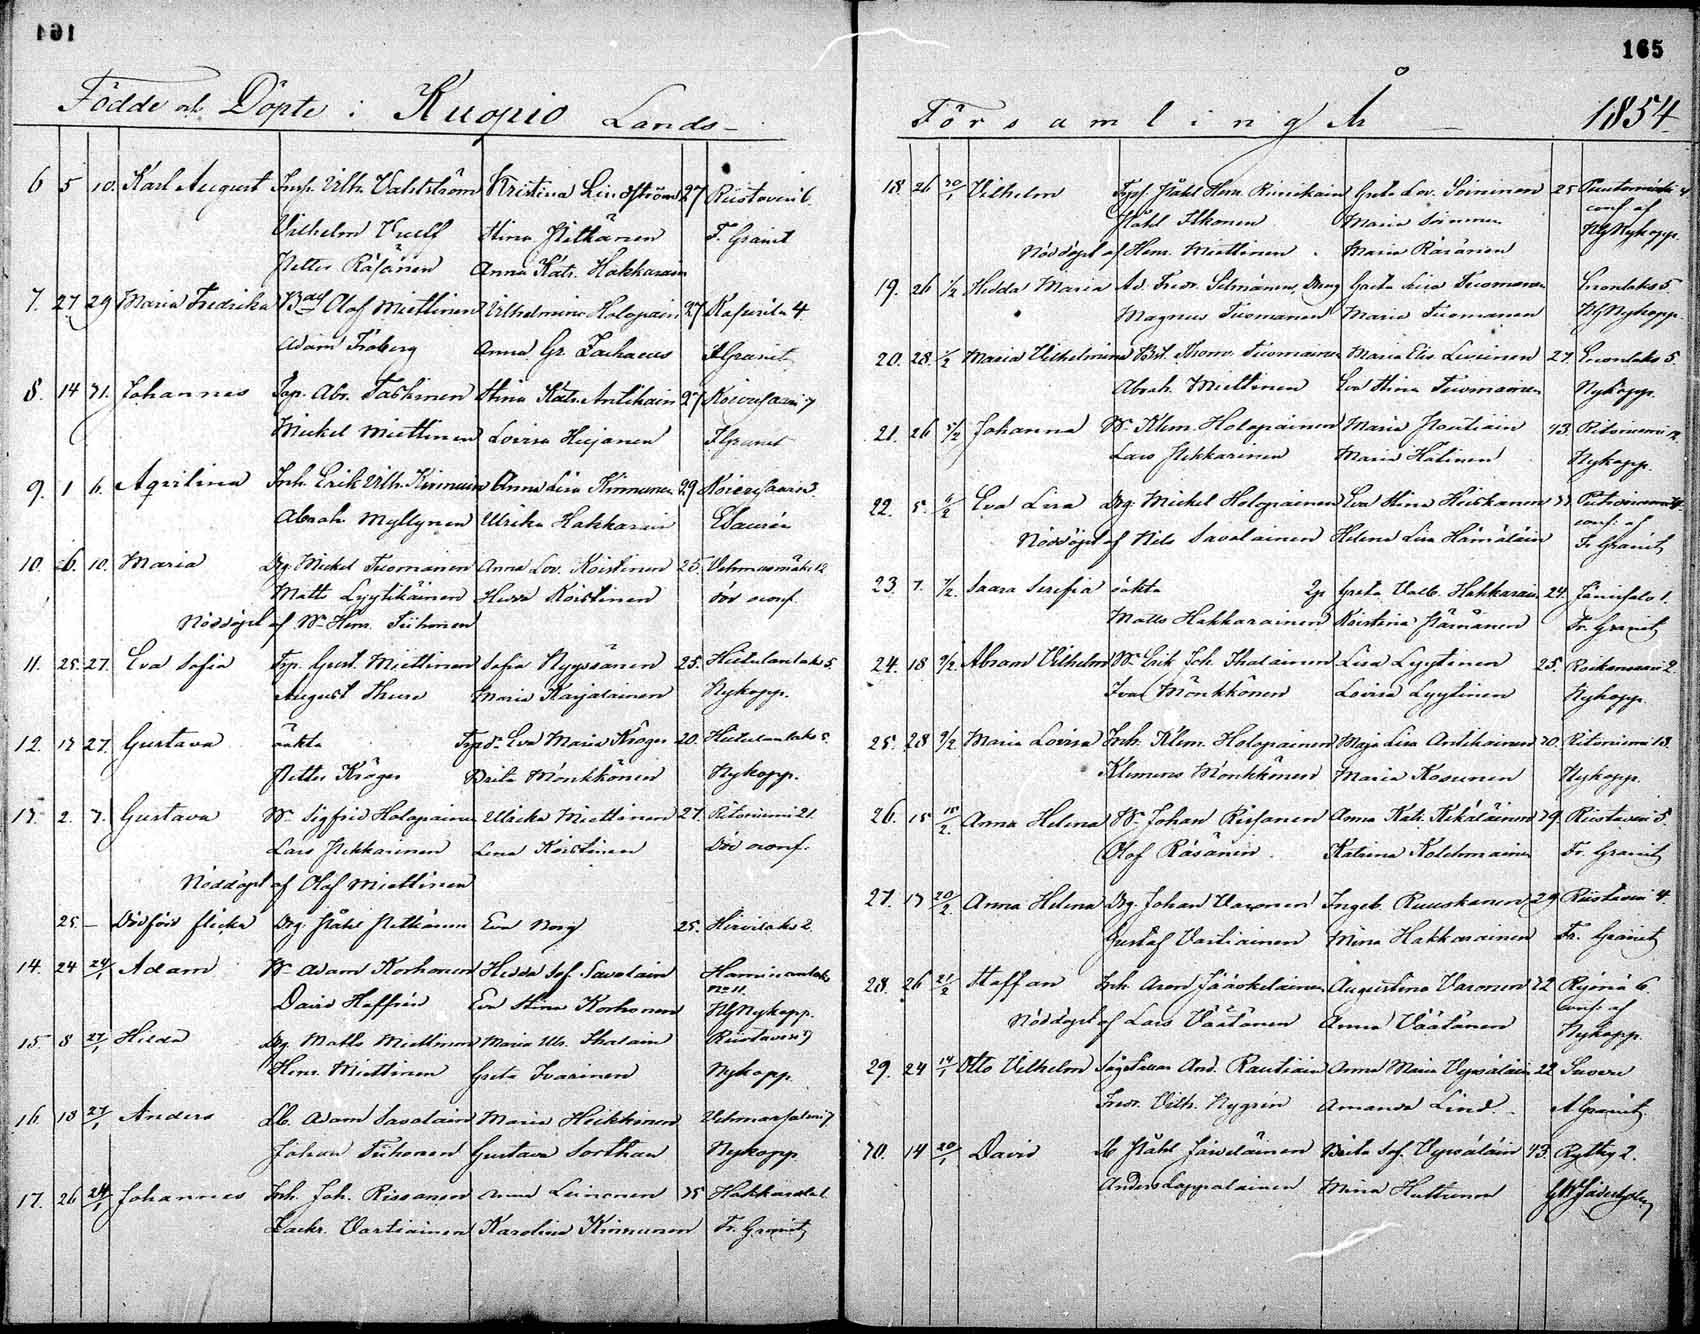 164
Födde och Döpte i Kuopio Lands-
6 5 10. Karl August Insp. Vilh. Valstström Kristina Lindström 27 Riistavesi 6.
Vilhelm Vulf Stina Pitkänen F. Granit
Petter Räsänen Anna Katr. Hakkarain
7. 27 29 Maria Fredrika Olof Miettinen Vilhelmina Holopain 27 Kasurila 4.
Adam Fröberg Anna Gr. Zachaeus F Granit
8. 14 31. Johannes Torp. Abr. Taskinen Stina Katr. Antikain 27 Koivusaari 7
Mickel Miettinen Lovisa Hujanen F. Granit
9. 1 6. Aqvilina Inh. Erik Vilh. Kinnunen Anna Lisa Kinnunen 29 Koivusaari 3.
Abrah. Myllynen Ulrika Hakkarain E Saurén
10. 6. 10. Maria Dg. Mickel Tuomainen Anna Lov. Koistinen 25. Vehmasmäki 12
Matt Lyytikäinen Hedda Koistinen död oconf.
Nöddöpt af Bd. Henr. Tiihonen
11. 25. 27. Eva Sofia Torp. Gust. Miettinen Sofia Nyyssönen 25. Hiltulanlaks 5.
August Thure Maria Karjalainen Nykopp.
12. 17 27. Gustava oäkta Torp dr Eva Maria Kröger 20. Hiltulanlaks 5.
Petter Kröger Brita Mönkkönen Nykopp.
13. 2. 7. Gustava Bd. Sigfrid Holopainen Ulrika Miettinen 27. Ritoniemi 21.
Lars Pekkarinen Lena Koistinen Död oconf.
Nöddöpt af Olof Miettinen
25. — Dödföd flicka Dg. Påhl Pitkänen Eva Norg 25. Hirvilaks 2.
14. 24 24/1 Adam Bd. Adam Korhonen Hedda Sof. Savolain Haminanlaks
No 11.
David Hoffrén Eva Stina Korhonen HG Nykopp.
15. 8 27/1 Hilda Dg. Matts Miettinen Maria Ulr. Ihalain Riistavesi 9
Henr. Miettinen Greta Ivarinen Nykopp.
16. 18 27/1 Anders Lb. Adam Savolain Maria Heikkinen Vehmersalmi 7
Johan Tiihonen Gustava Sorthan Nykopp
17. 26 28/1 Johannes Inh. Joh. Rissanen Anna Leinonen 35 Hakkarala 1.
Zachr. Vartiainen Karolina Kinnunen Fr. Granit
165
Församling År 1854.
18. 26 30/1 Vilhelm Torp. Påhl Henr. Rimikain Greta Lov. Soininen 25 4
conf. af
Påhl Itkonen Maria Soininen HG Nykopp.
Nöddöpt af Henr. Miettinen. Maria Räsänen
19. 26 1/2 Hedda Maria Ad. Fredr. Selmänen, Dreng Greta Lisa Tuomainen Enonlaks 5.
Magnus Tuomainen Maria Tuomainen HG Nykopp.
20. 28. 1/2 Maria Vilhelmina Bd. Thom. Tuomainen Maria Elis Leivinen 27 Enonlaks 5.
Abrah. Miettinen Eva Stina Tuomainen Nykopp.
21. 26 5/2 Johanna Bd. Klem. Holopainen Maria Pautiain 43. Ritoniemi 12.
Lars Pekkarinen Maria Hätinen Nykopp.
22. 5. 6/2 Eva Lisa Dg. Mickel Holopainen Eva Stina Huskanen 33
conf. af
Nöddöpt af Nils Savolainen Helena Lisa Hämäläin Fr Granit
23. 7. 7/2. Saara Serefia oäkta Greta Valb. Hakkarain 24. Jännisalo 1.
Matts Hakkarainen Kristina Hämänen Fr. Granit
24. 18 9/2. Abram Vilhelm Bd. Erik Joh. Ihalainen Lisa Lyytinen 25. Roikansaari 2.
Ivar Mönkkönen Lovisa Lyytinen Nykopp.
25. 28 9/2 Maria Lovisa Inh. Klem. Holopainen Maja Lisa Antikainen 30. Ritoniemi 13.
Klemens Mönkkönen Maria Kosunen Nykopp.
26. 15 15/2. Anna Helena Bd. Johan Rissanen Anna Katr. Kekäläinen 39. Riistavesi 5.
Olof Räsänen. Katrina Kolehmainen Fr. Granit
27. 17 20/2. Anna Helena Dg. Johan Varonen Ingeb. Ruuskanen 29 Riistavesi 4.
Gustaf Vartiainen Mina Hakkarainen Fr. Granit
28. 26 21/2 Staffan Inh. Aron Jääskeläinen Augustina Varonen 32 Ryönä 6.
conf. af
Nöddöpt af Lars Väätänen Anna Väätänen Nykopp.
29. 24 14/1 Otto Vilhelm And. Rautiain Anna Maria Vepsäläin 22 Suovu
Fredr. Vilh. Nygrén Amanda Lind. A Granit
30. 14 20/1 David Lb Påhl Jäiveläinen Brita Sof. Vepsäläin 43. Rytky 2.
Anders Lappalainen Mina Huttunen